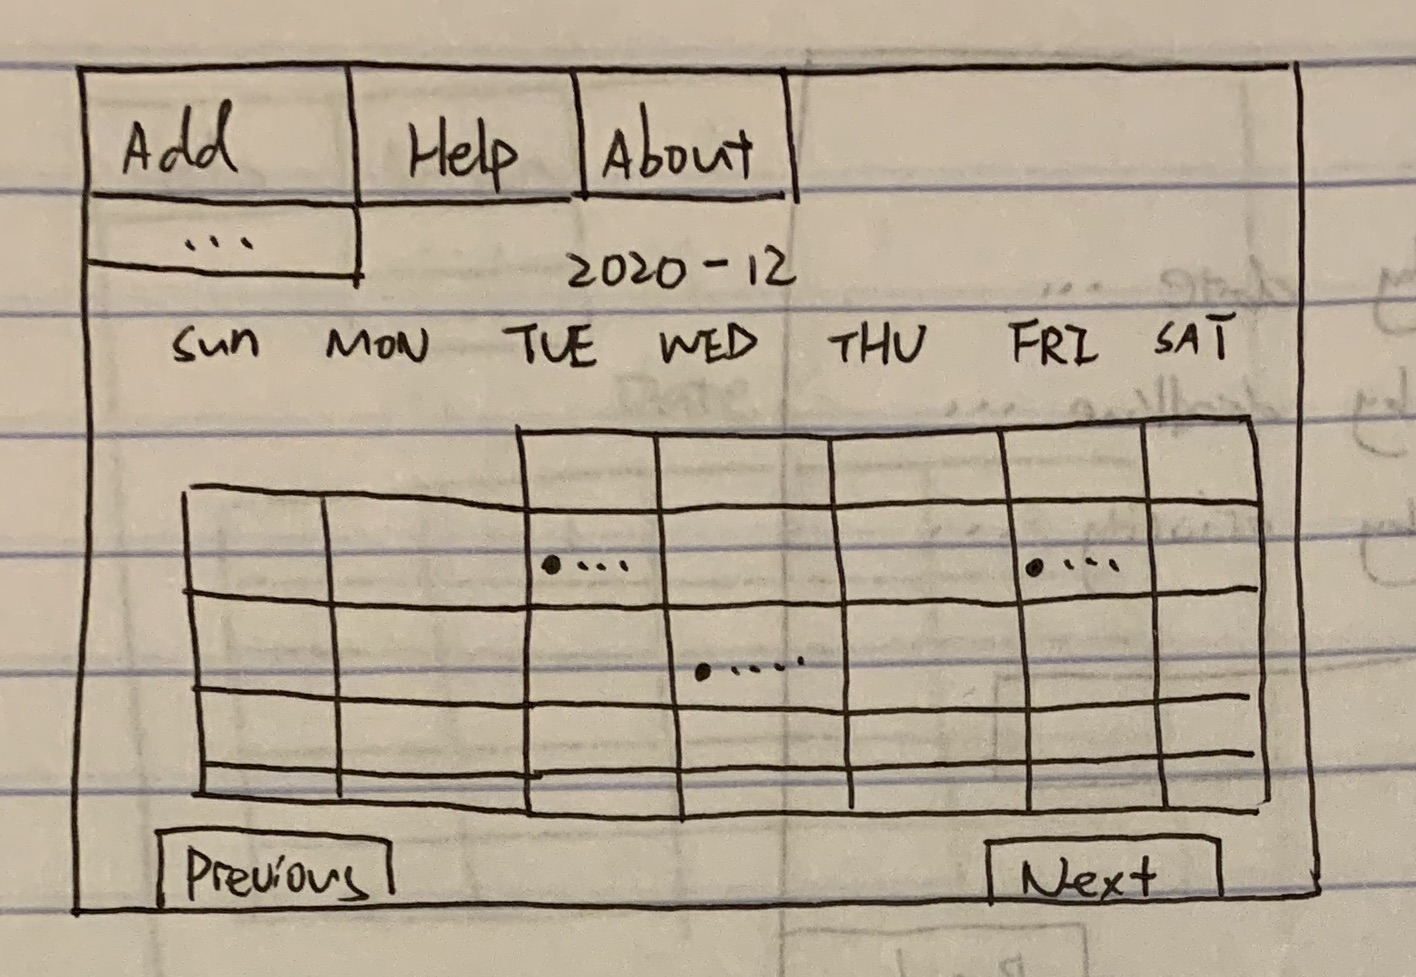 Add Help About
...
2020-12
Sun MON TUE WED THU FRI SAT
•... •...
•.....
Previous Next